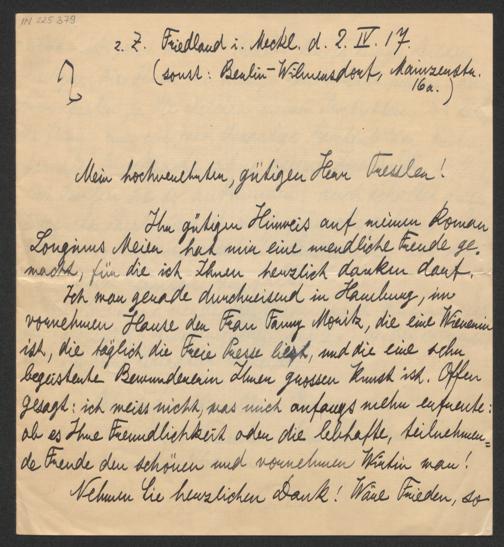 IN 225 379
z. Z. Friedland i. Meckl. d. 2. IV. 17.
(sonst: Berlin-Wilmersdorf, Mainzerstr.
16a.)
Mein hochverehrter, gütigen Herr
Ihr gütigen Hinweis auf meinen Roman
Longinus Meier hat mir eine unendliche Freude ge-
macht, für die ich Ihnen herzlich danken darf.
Ich war gerade durchreisend in Hamburg, im
vornehmen Hause der Frau Fanny Moritz, die eine Wienerin
ist, die täglich die Freie Presse liest, und die eine sehr
begeisterte Bewundererin Ihrer grossen Kunst ist. Offen
gesagt: ich weiss nicht, was mich anfangs mehr erfreute:
ob es Ihre Freundlichkeit oder die lebhafte, teilnehmen-
de Freude der schönen und vornehmen Wirtin war!
Nehmen Sie herzlichen Dank! Wäre Frieden, so